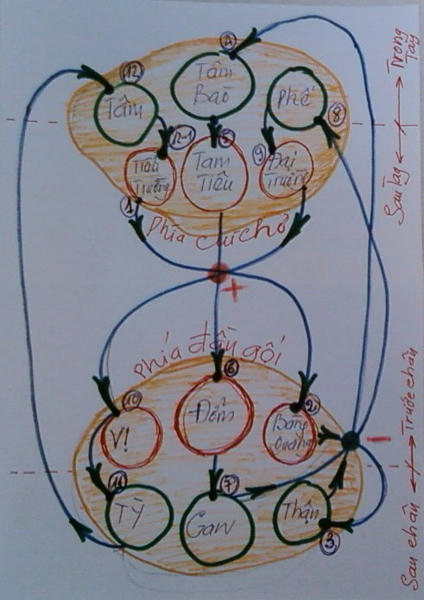 12
Tâm
4
Tâm
Bào
Phế
8
12-1
Tiểu
Trường
1
5
Tam
Tiêu
9
Đại
Trường
Trong
Tay
Phía cùi chỏ
+
Phía đầu gối
10
Vị
6
Đởm
2
Bàng
Quang
-
11
Tỳ
7
Gan
Thận
3
Trước chân
Sau chân